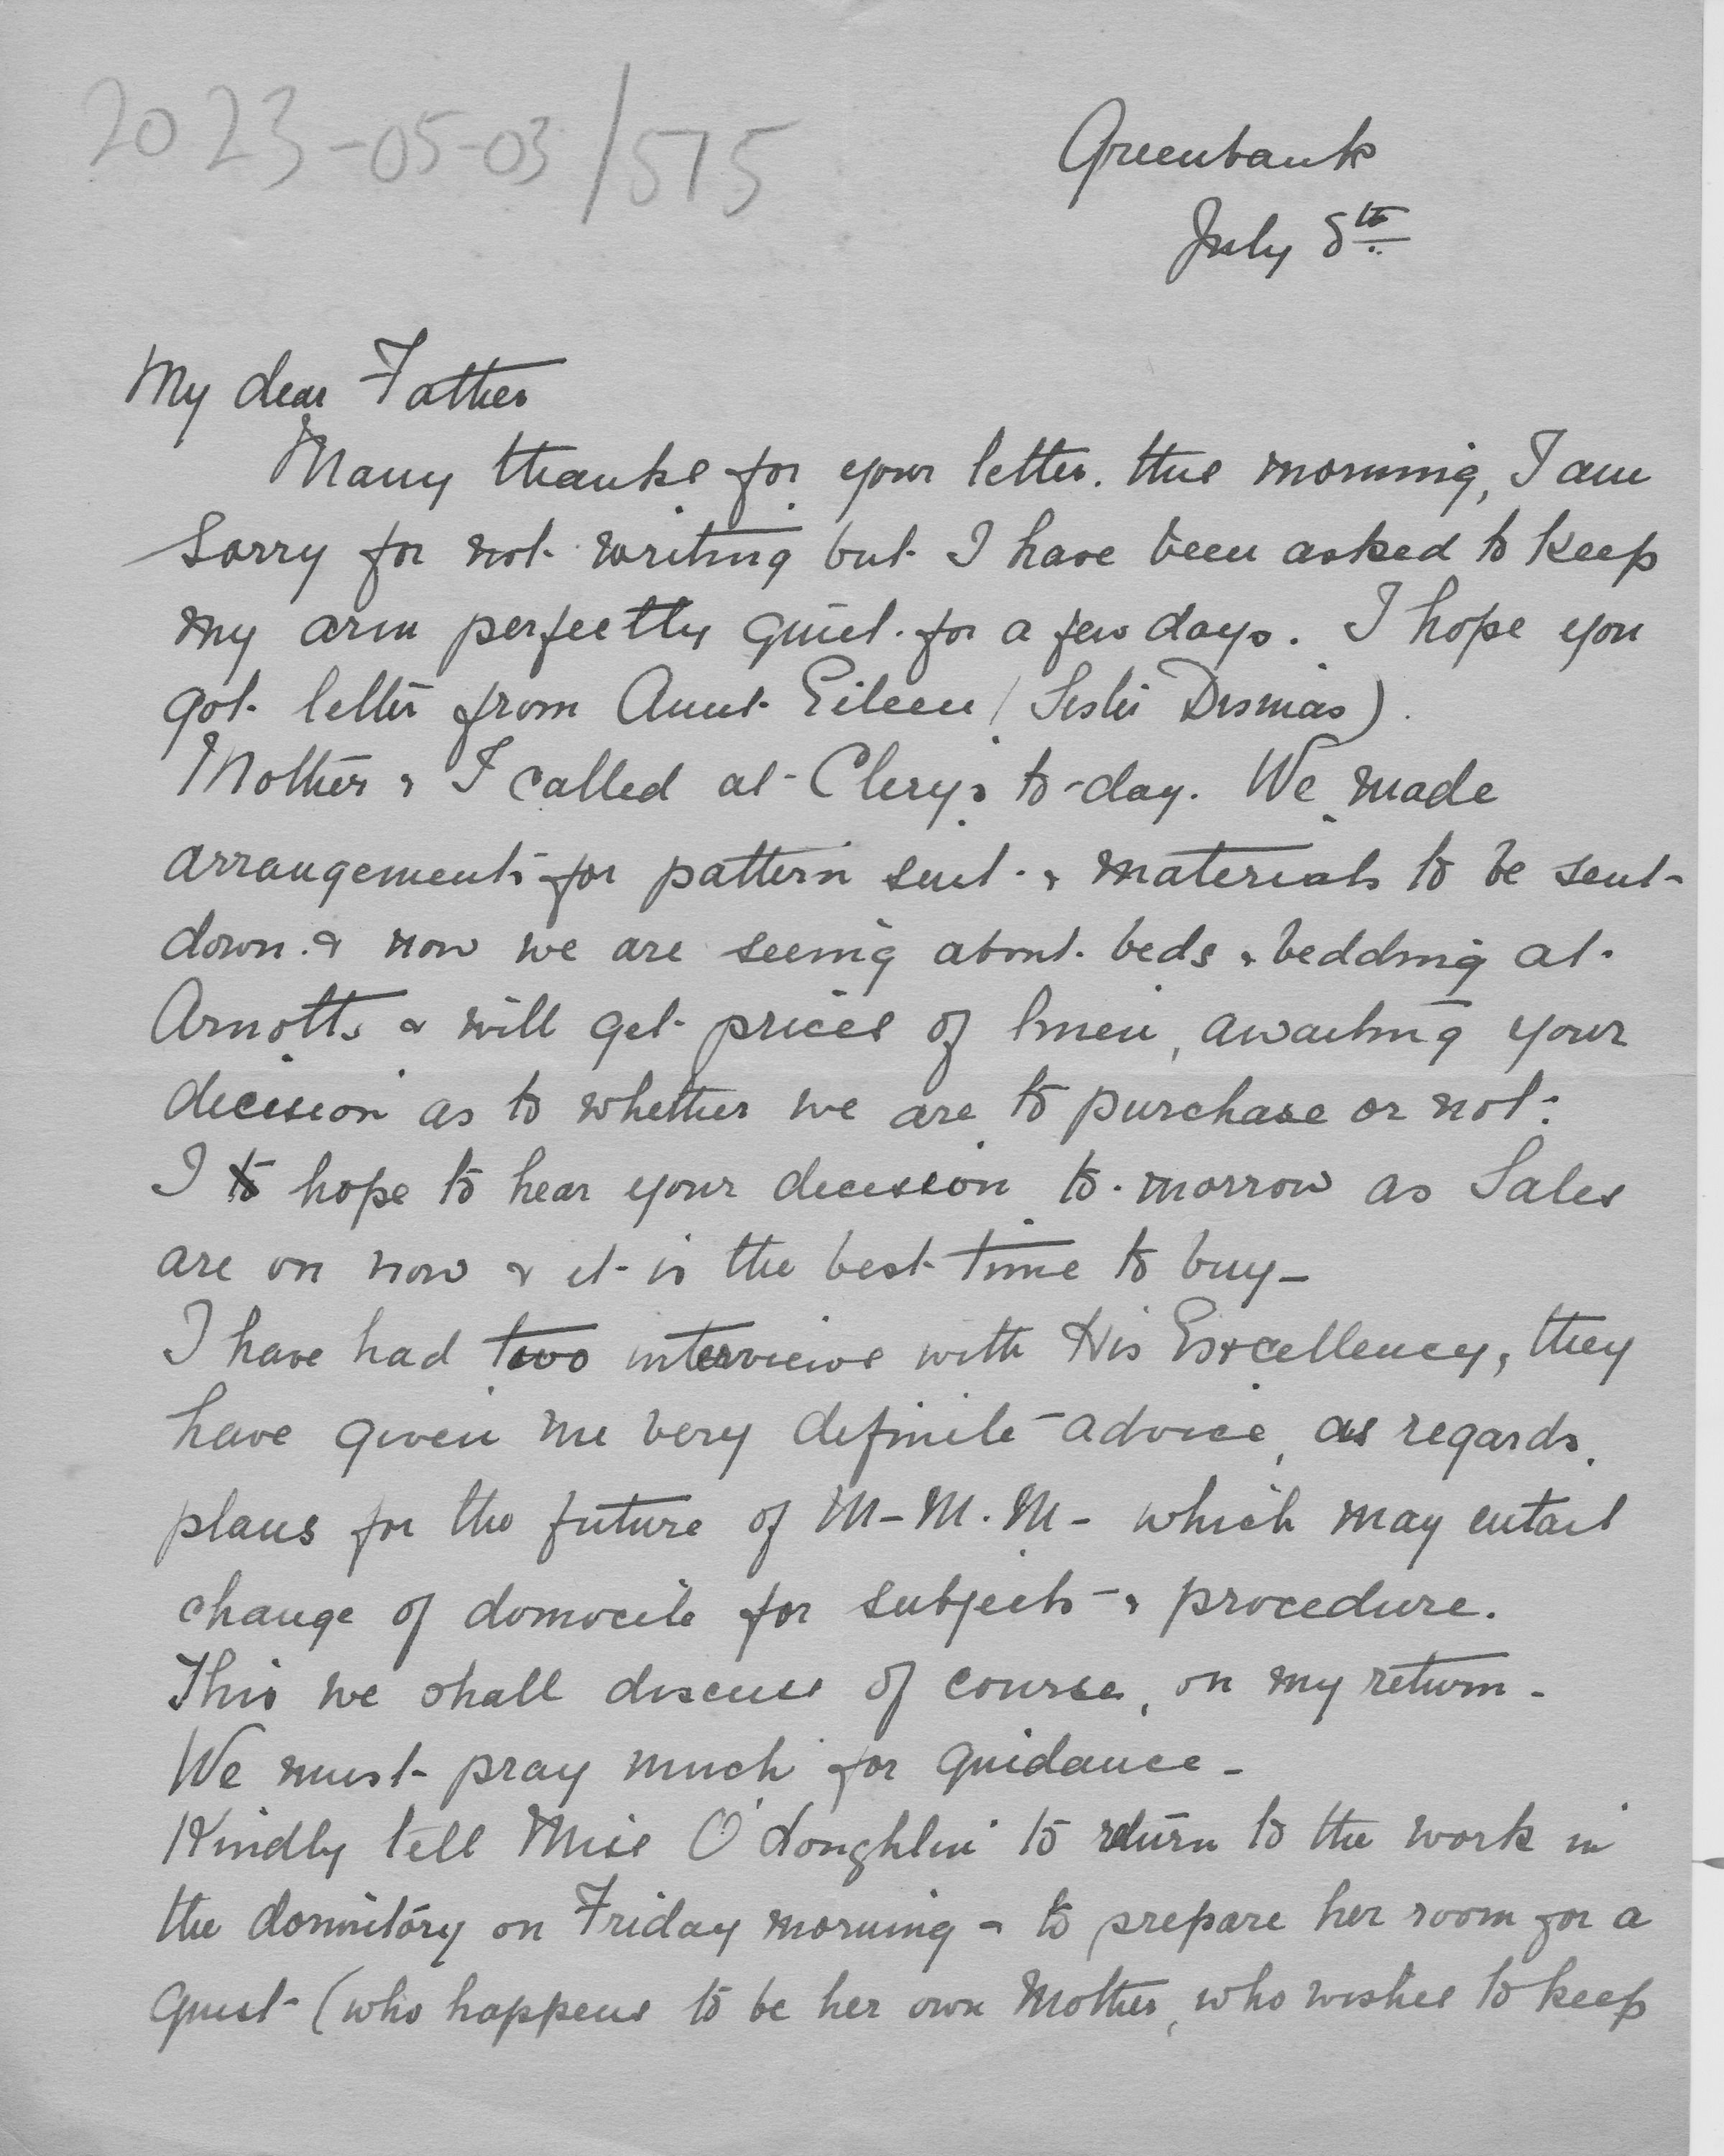 2023-05-03/575
Greenbank
July 8th
My dear Father
Many thanks for your letter this morning, I am
sorry for not writing but I have been asked to keep
my arm perfectly quiet for a few days. I hope you
got letter from Aunt Eileen (Sister Dismas).
Mother & I called at Clery's to-day. We made
arrangements for pattern suit & materials to be sent
down & now we are seeing about beds & bedding at
Arnotts & will get prices of linen, awaiting your
decision as to whether we are to purchase or not.
I to hope to hear your decision to-morrow as Sales
are on now & it is the best time to buy-
I have had two interviews with His Excellency, they
have given me very definite advice, as regards
plans for the future of M-M.M- which may entail
change of domocile for subjects - & procedure.
This we shall discuss of course, on my return -
We must pray much for guidance -
Kindly tell Miss O'Loughlin to return to the work in
the dormitory on Friday morning - to prepare her room for a
guest - (who happens to be her own Mother, who wishes to keep